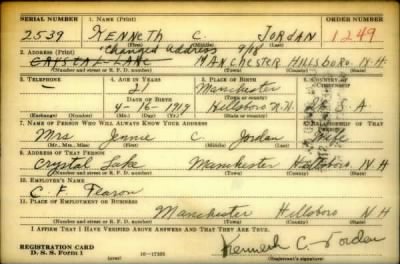 SERIAL NUMBER 1. NAME (Print) ORDER NUMBER
2539 KENNETH C. JORDAN 1249
(First) (Middle) (Last)
Changed address 9/18
2. ADDRESS (Print)
CRYSTAL LAKE MANCHESTER HILLSBORO N.H
(Number and street or R. F. D. number) (Town) (County) (State)
3. TELEPHONE 4. AGE IN YEARS 5. PLACE OF BIRTH 6. COUNTRY OF CITIZENSHIP
— 21 Manchester
DATE OF BIRTH (Town or county)
4-16-1919 Hillsboro N.H. U.S.A.
(Exchange) (Number) (Mo.) (Day) (Yr.) (State or country)
7. NAME OF PERSON WHO WILL ALWAYS KNOW YOUR ADDRESS 8. RELATIONSHIP OF THAT PERSON
Mrs Jennie C. Jordan Wife
(Mr., Mrs., Miss) (First) (Middle) (Last)
9. ADDRESS OF THAT PERSON
Crystal Lake Manchester Hillsboro N H
(Number and street or R. F. D. number) (Town) (County) (State)
10. EMPLOYER'S NAME
C. F.
11. PLACE OF EMPLOYMENT OR BUSINESS
Manchester Hillsboro N H
(Number and street or R. F. D. number) (Town) (County) (State)
I AFFIRM THAT I HAVE VERIFIED ABOVE ANSWERS AND THAT THEY ARE TRUE.
REGISTRATION CARD
D. S. S. Form 1 (over) 16—17105 Kenneth C. Jordan
(Registrant's signature)